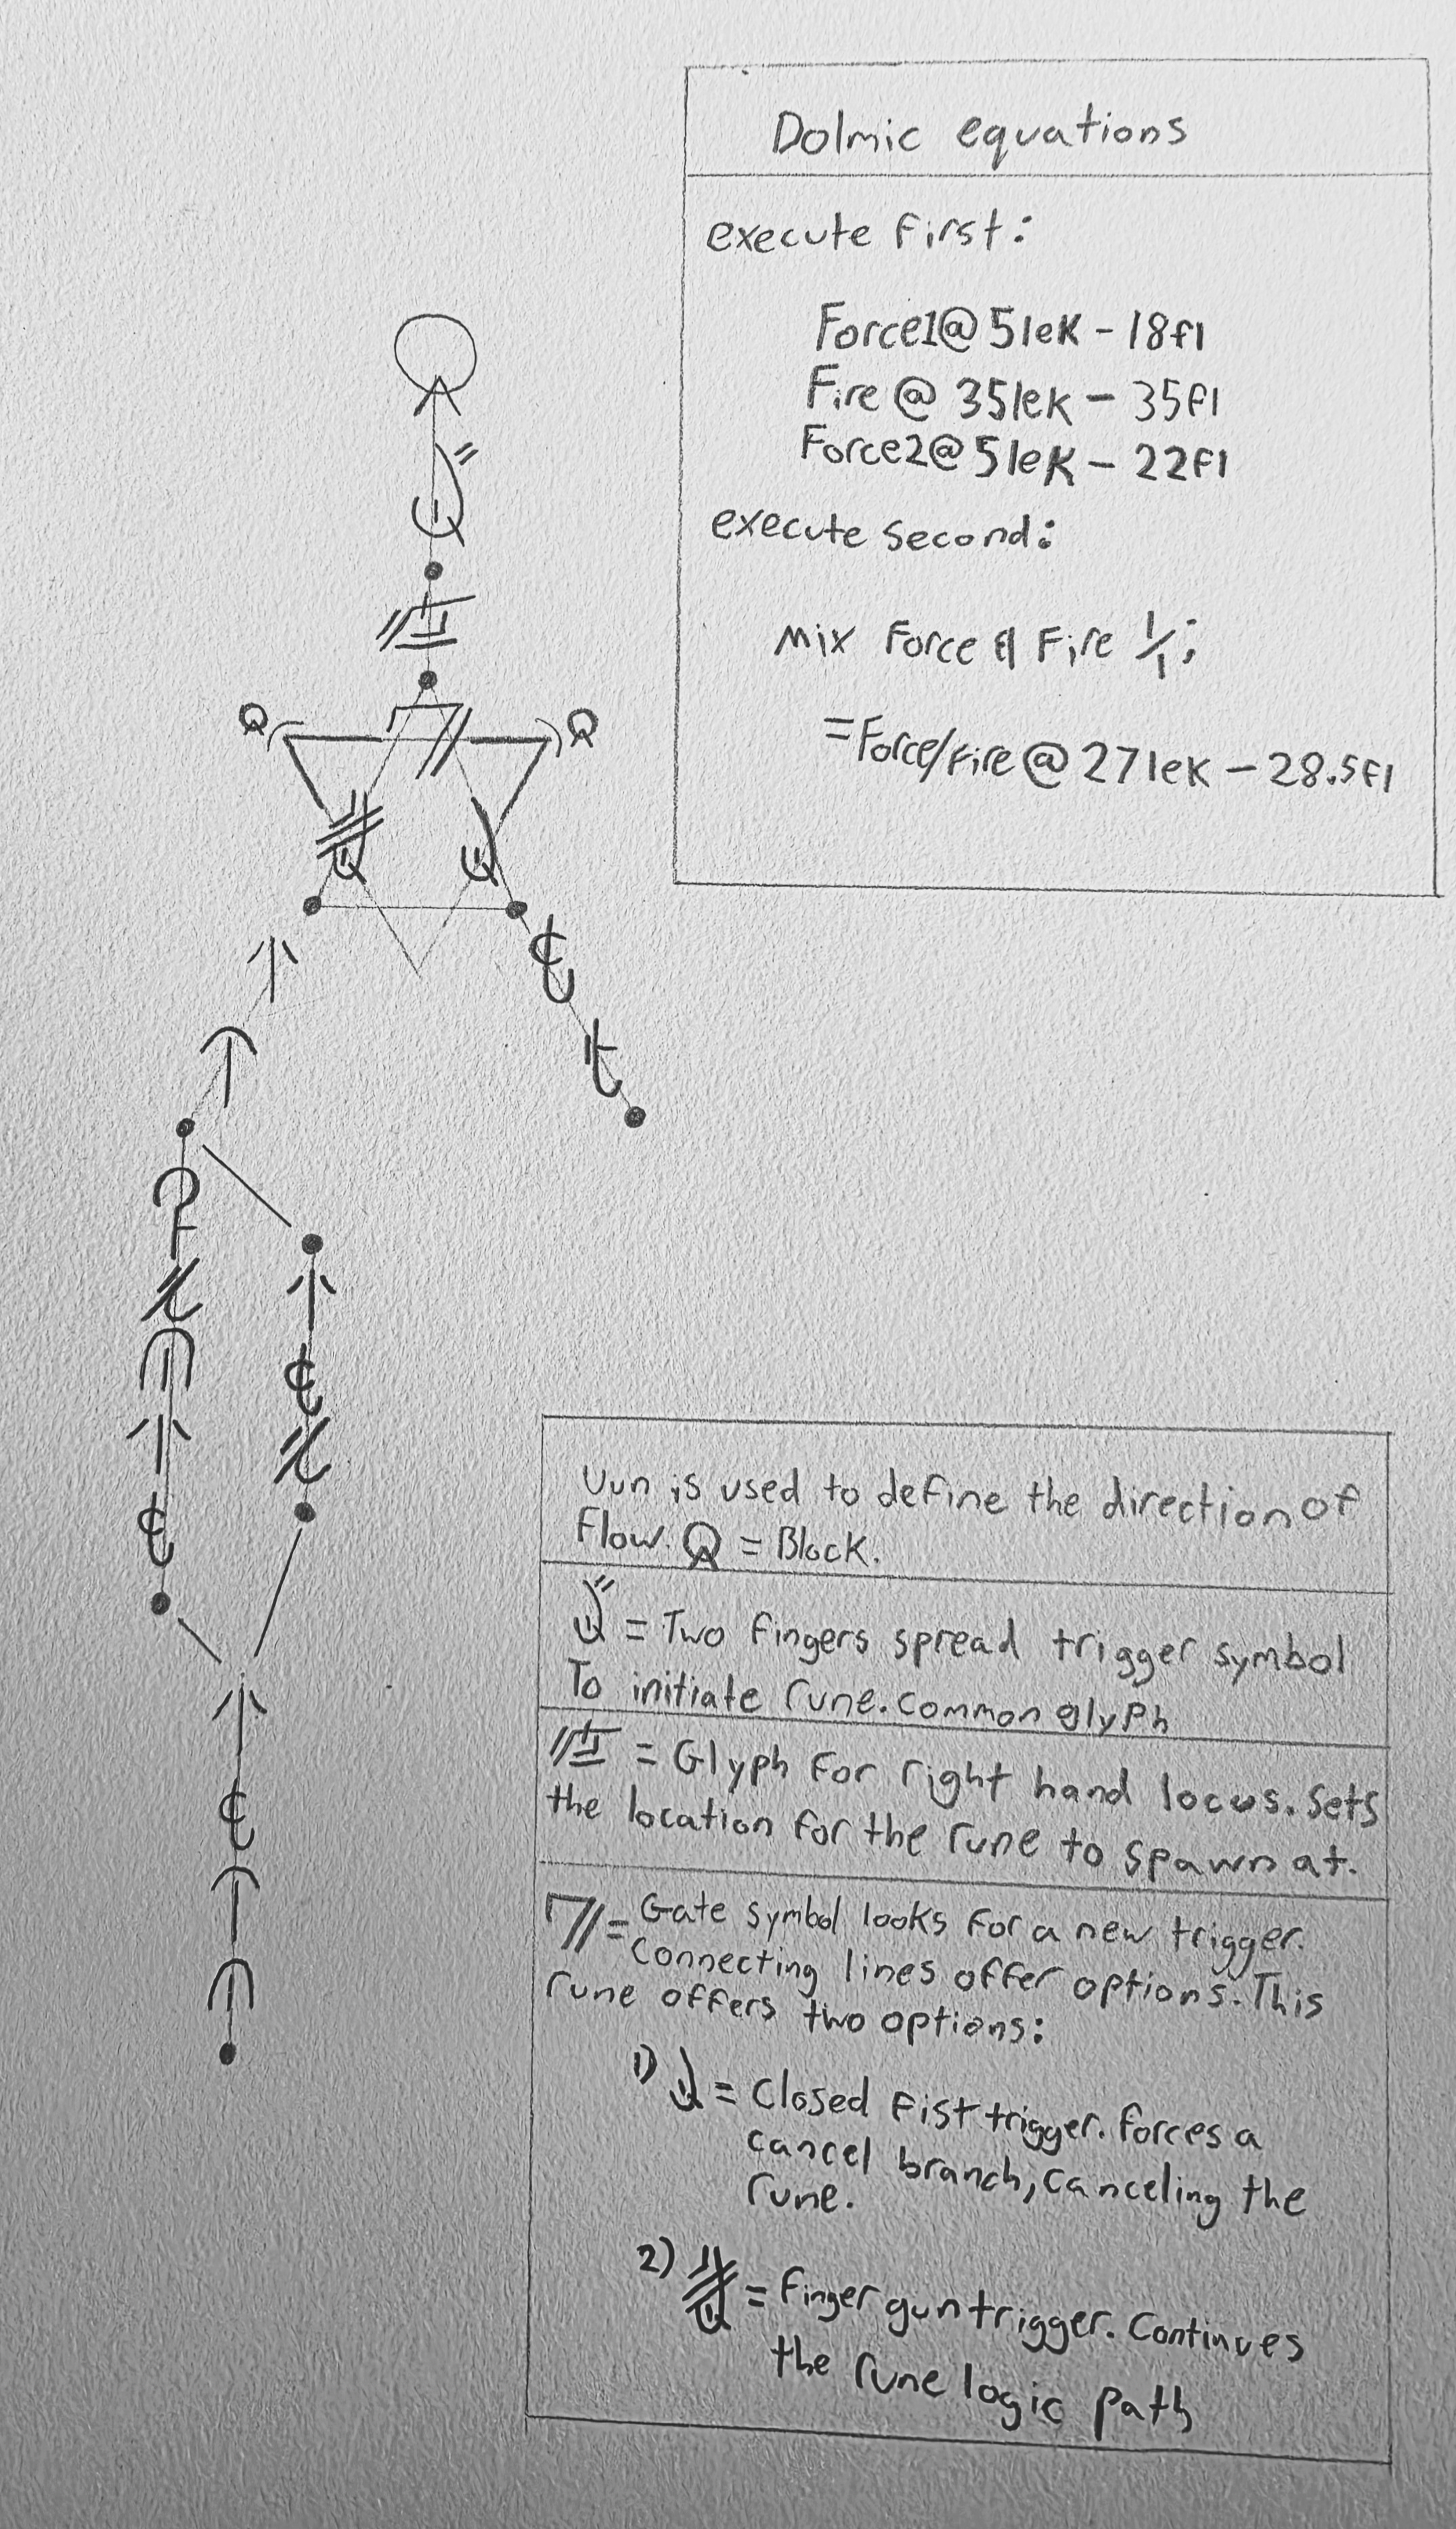 Dolmic equations
execute First:
Force1@ 51eK - 18fl
Fire @ 351eK - 35fl
Force2@ 51eK - 22fl
execute second:
mix Force & Fire 1/1;
=Force/Fire @ 271eK - 28.5fl
Uun is used to define the direction of
Flow. = Block.
= Two fingers spread trigger symbol
To initiate rune. Common glyph
= Glyph for right hand locus. Sets
the location for the rune to spawn at.
= Gate symbol looks for a new trigger.
Connecting lines offer options. This
rune offers two options:
1) = Closed Fist trigger. Forces a
cancel branch, canceling the
rune.
2) = Finger gun trigger. Continues
the rune logic path